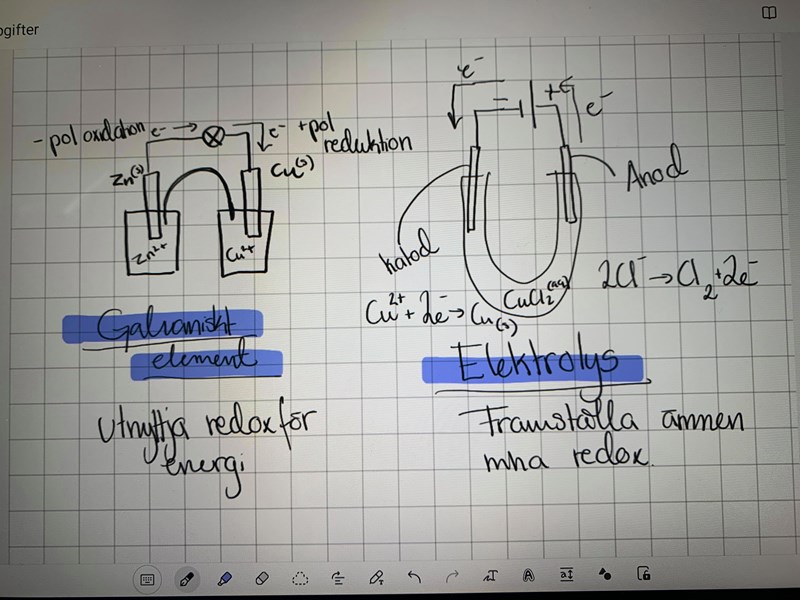 ogifter
- pol oxidation e⁻ → e⁻ +pol
reduktion
Zn(s)
Cu(s)
Zn²⁺
Cu²⁺
Galvaniskt
element
Utnyttja redox för
energi
e⁻
+
e⁻
Anod
katod
CuCl₂(aq)
2Cl⁻ → Cl₂ + 2e⁻
Cu²⁺ + 2e⁻ → Cu(s)
Elektrolys
Framställa ämnen
mha redox.